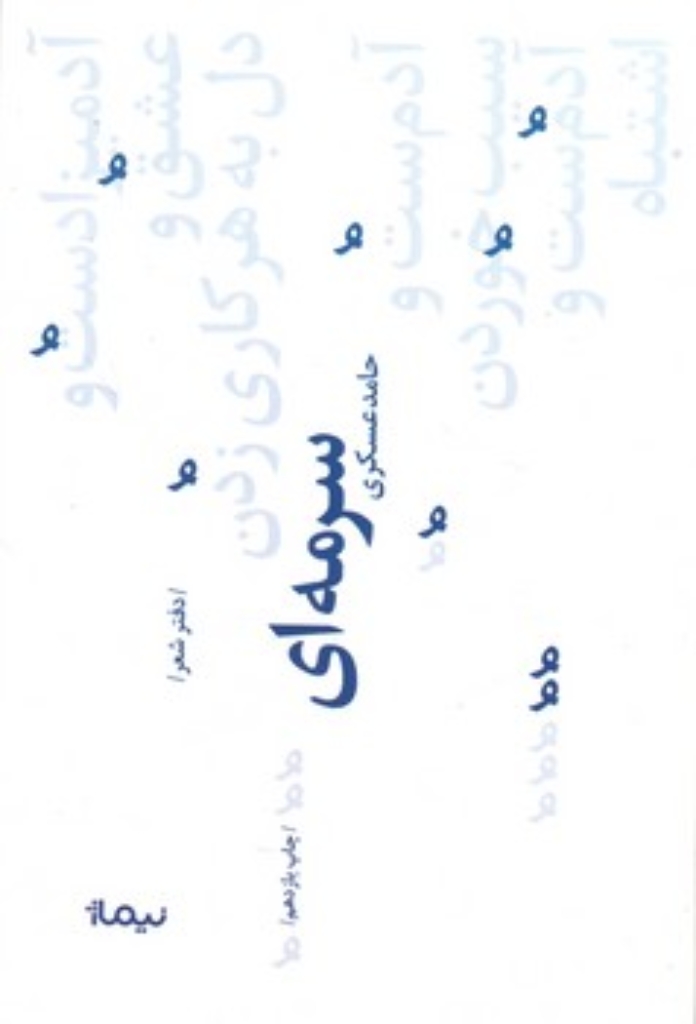 آدمیزادست و
عشق و
دل به هر کاری زدن
آدم‌ست و
سیب خوردن
آدم‌ست و
اشتباه
/دفتر شعر/
سرمه‌ای
حامد عسکری
/چاپ یازدهم/
نیماژ